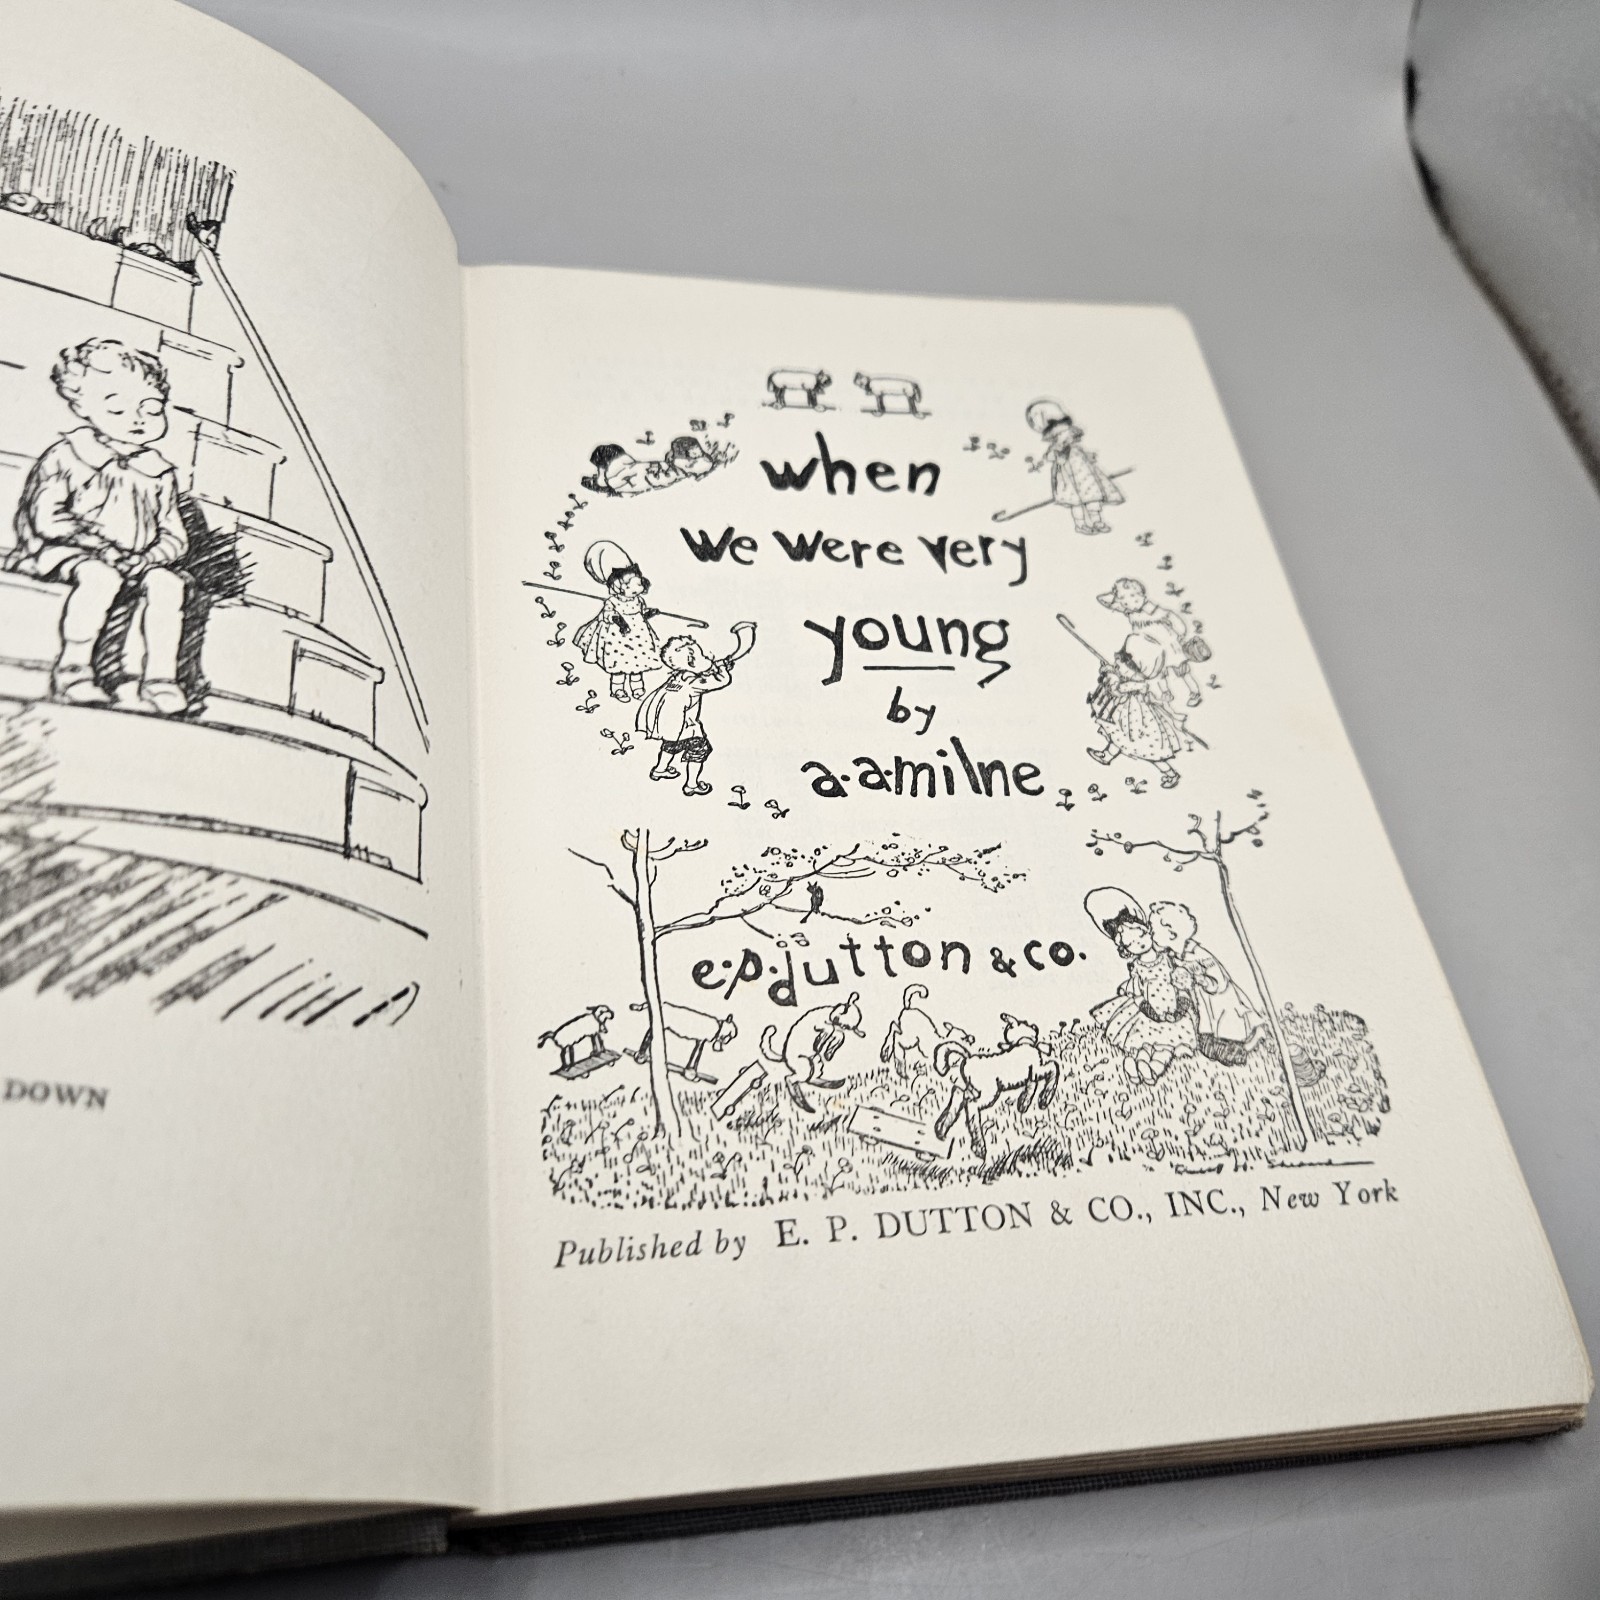 DOWN
when
we were very
young
by
a.a.milne
e.p.dutton & co.
Ernest H. Shepard
Published by E. P. DUTTON & CO., INC., New York